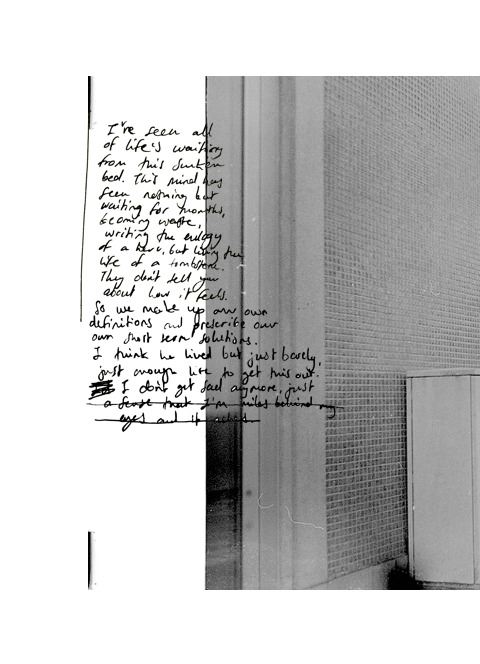 I've seen all
of life's waiting
from this sunken
bed. This mind has
seen nothing but
waiting for months,
becoming waste,
writing the eulogy
of a hero, but living the
life of a tombstone.
They don't tell you
about how it feels.
So we make up our own
definitions and prescribe our
own short term solutions.
I think he lived but just barely,
just enough life to get this out.
I don't get sad anymore, just
a sense that I'm miles behind my
eyes and it aches